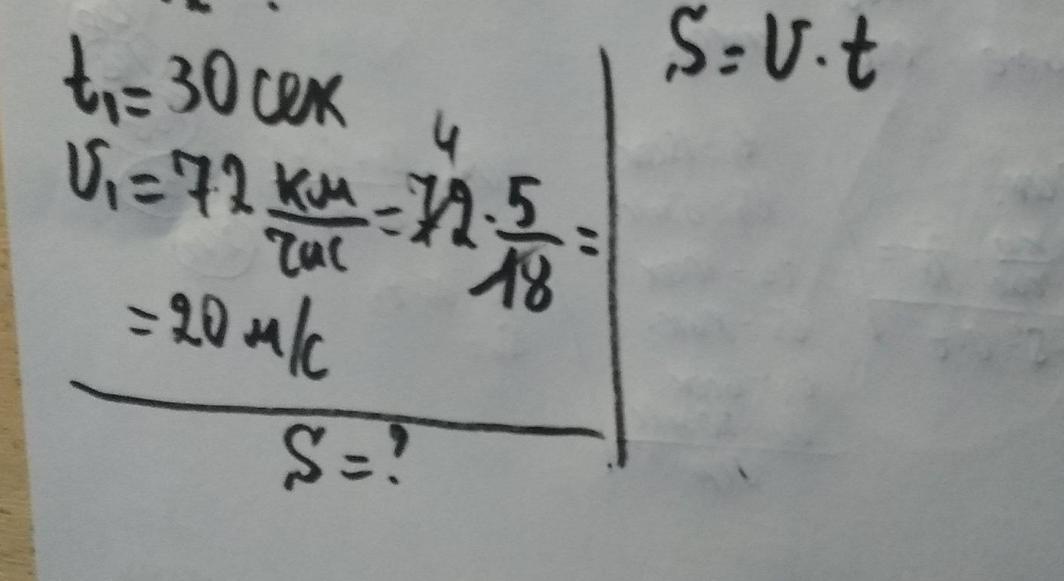 t₁ = 30 сек
V₁ = 72 км/час = 72 · 5/18 =
4
= 20 м/с
S = ?
S = V · t